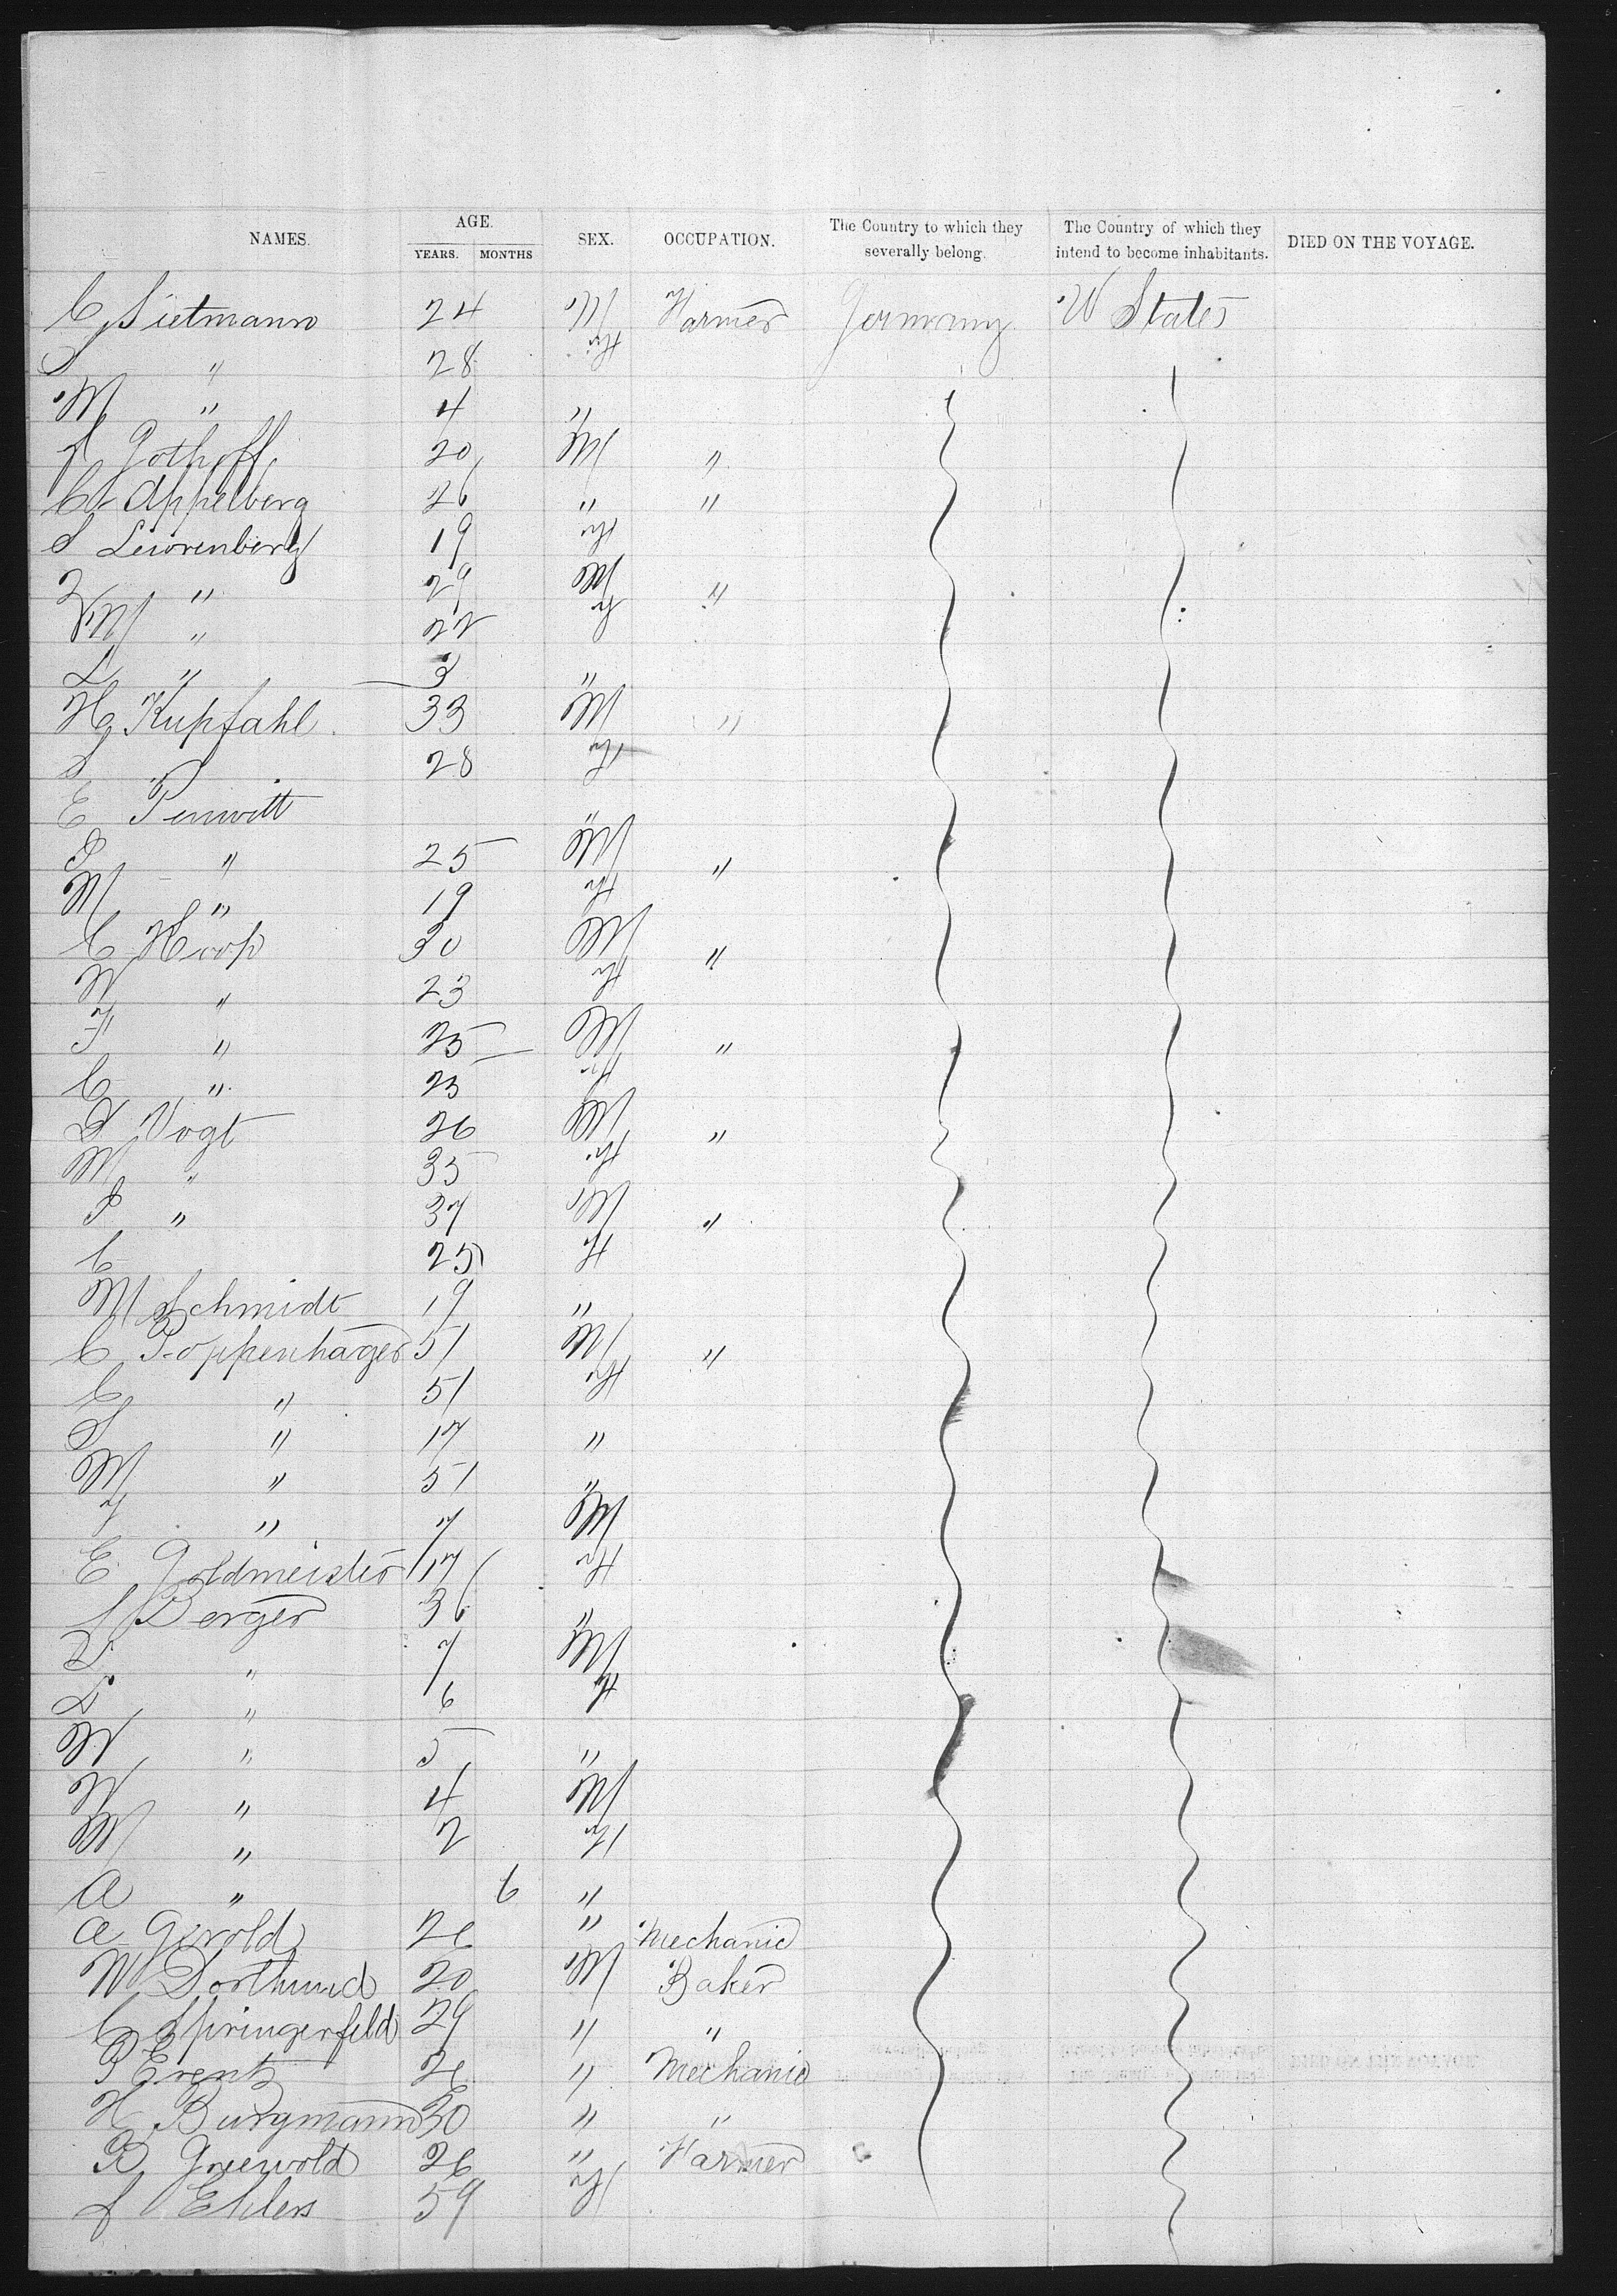 NAMES. AGE. YEARS. MONTHS SEX. OCCUPATION. The Country to which they severally belong. The Country of which they intend to become inhabitants. DIED ON THE VOYAGE.
C Sietmann 24 M Farmer Germany U States
S " 28 F
M " 4 "
J Gothoff 20 M "
C Appelberg 26 " "
S Leworenberg 19 F
" 29 M "
M " 22 F
L " 3 "
H Kupfahl 33 M "
S 28 F
E Penwitt "
P " 25 M "
M " 19 F
C Hoop 30 M "
W " 23 F
F " 25 M "
C " 25 F
D Vogt 26 M "
M " 35 F
P " 37 M "
C 25 F
M Schmidt 19 "
C Poppenhager 51 M "
C " 51 F
S " 17 "
M " 51 "
F " 7 M
E Goldmeister 17 F
S Berger 36 "
" 7 M
L " 6 F
W " 5 "
W " 4 M
M " 2 F
A " 6 "
A Gerold 26 " Mechanic
W Dorthund 20 M Baker
C Springerfeld 29 " "
P Erentz 26 " Mechanic
H Burgmann 30 " "
B Greewold 26 " Farmer
S Ehlers 59 F